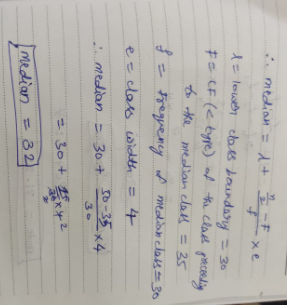 ∴ median = l + (n/2 - F)/f × c
l = lower class boundary = 30
F = CF (< type) of the class preceding
to the median class = 35
f = frequency of median class = 30
c = class width = 4
∴ median = 30 + (50 - 35)/30 × 4
= 30 + 15/30 × 4 2
median = 32